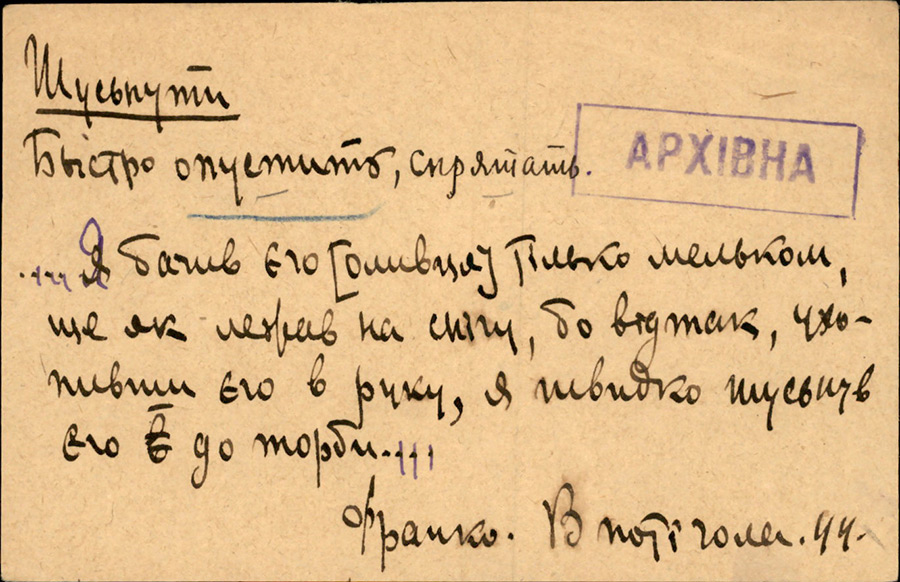 Шуснути
Быстро опустить, спрятать.
АРХІВНА
...„Я бачив єго [оливця] тілько мельком,
ще як лежав на снігу, бо відтак, ухо-
пивши єго в руку, я швидко шуснув
єго до торби...”
Франко. В поті чола. 44.